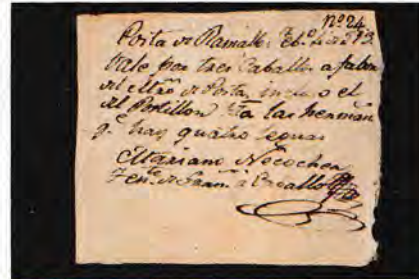 nº 24
Posta de Ramallo Febº 4 de 1813
Vale por tres Caballos a favor
del Mtro de Posta, incluso el
del Postillon hta las hermanas
q.e hay quatro leguas
Mariano Necochea
Ten.te de Gran.s a Cavallo